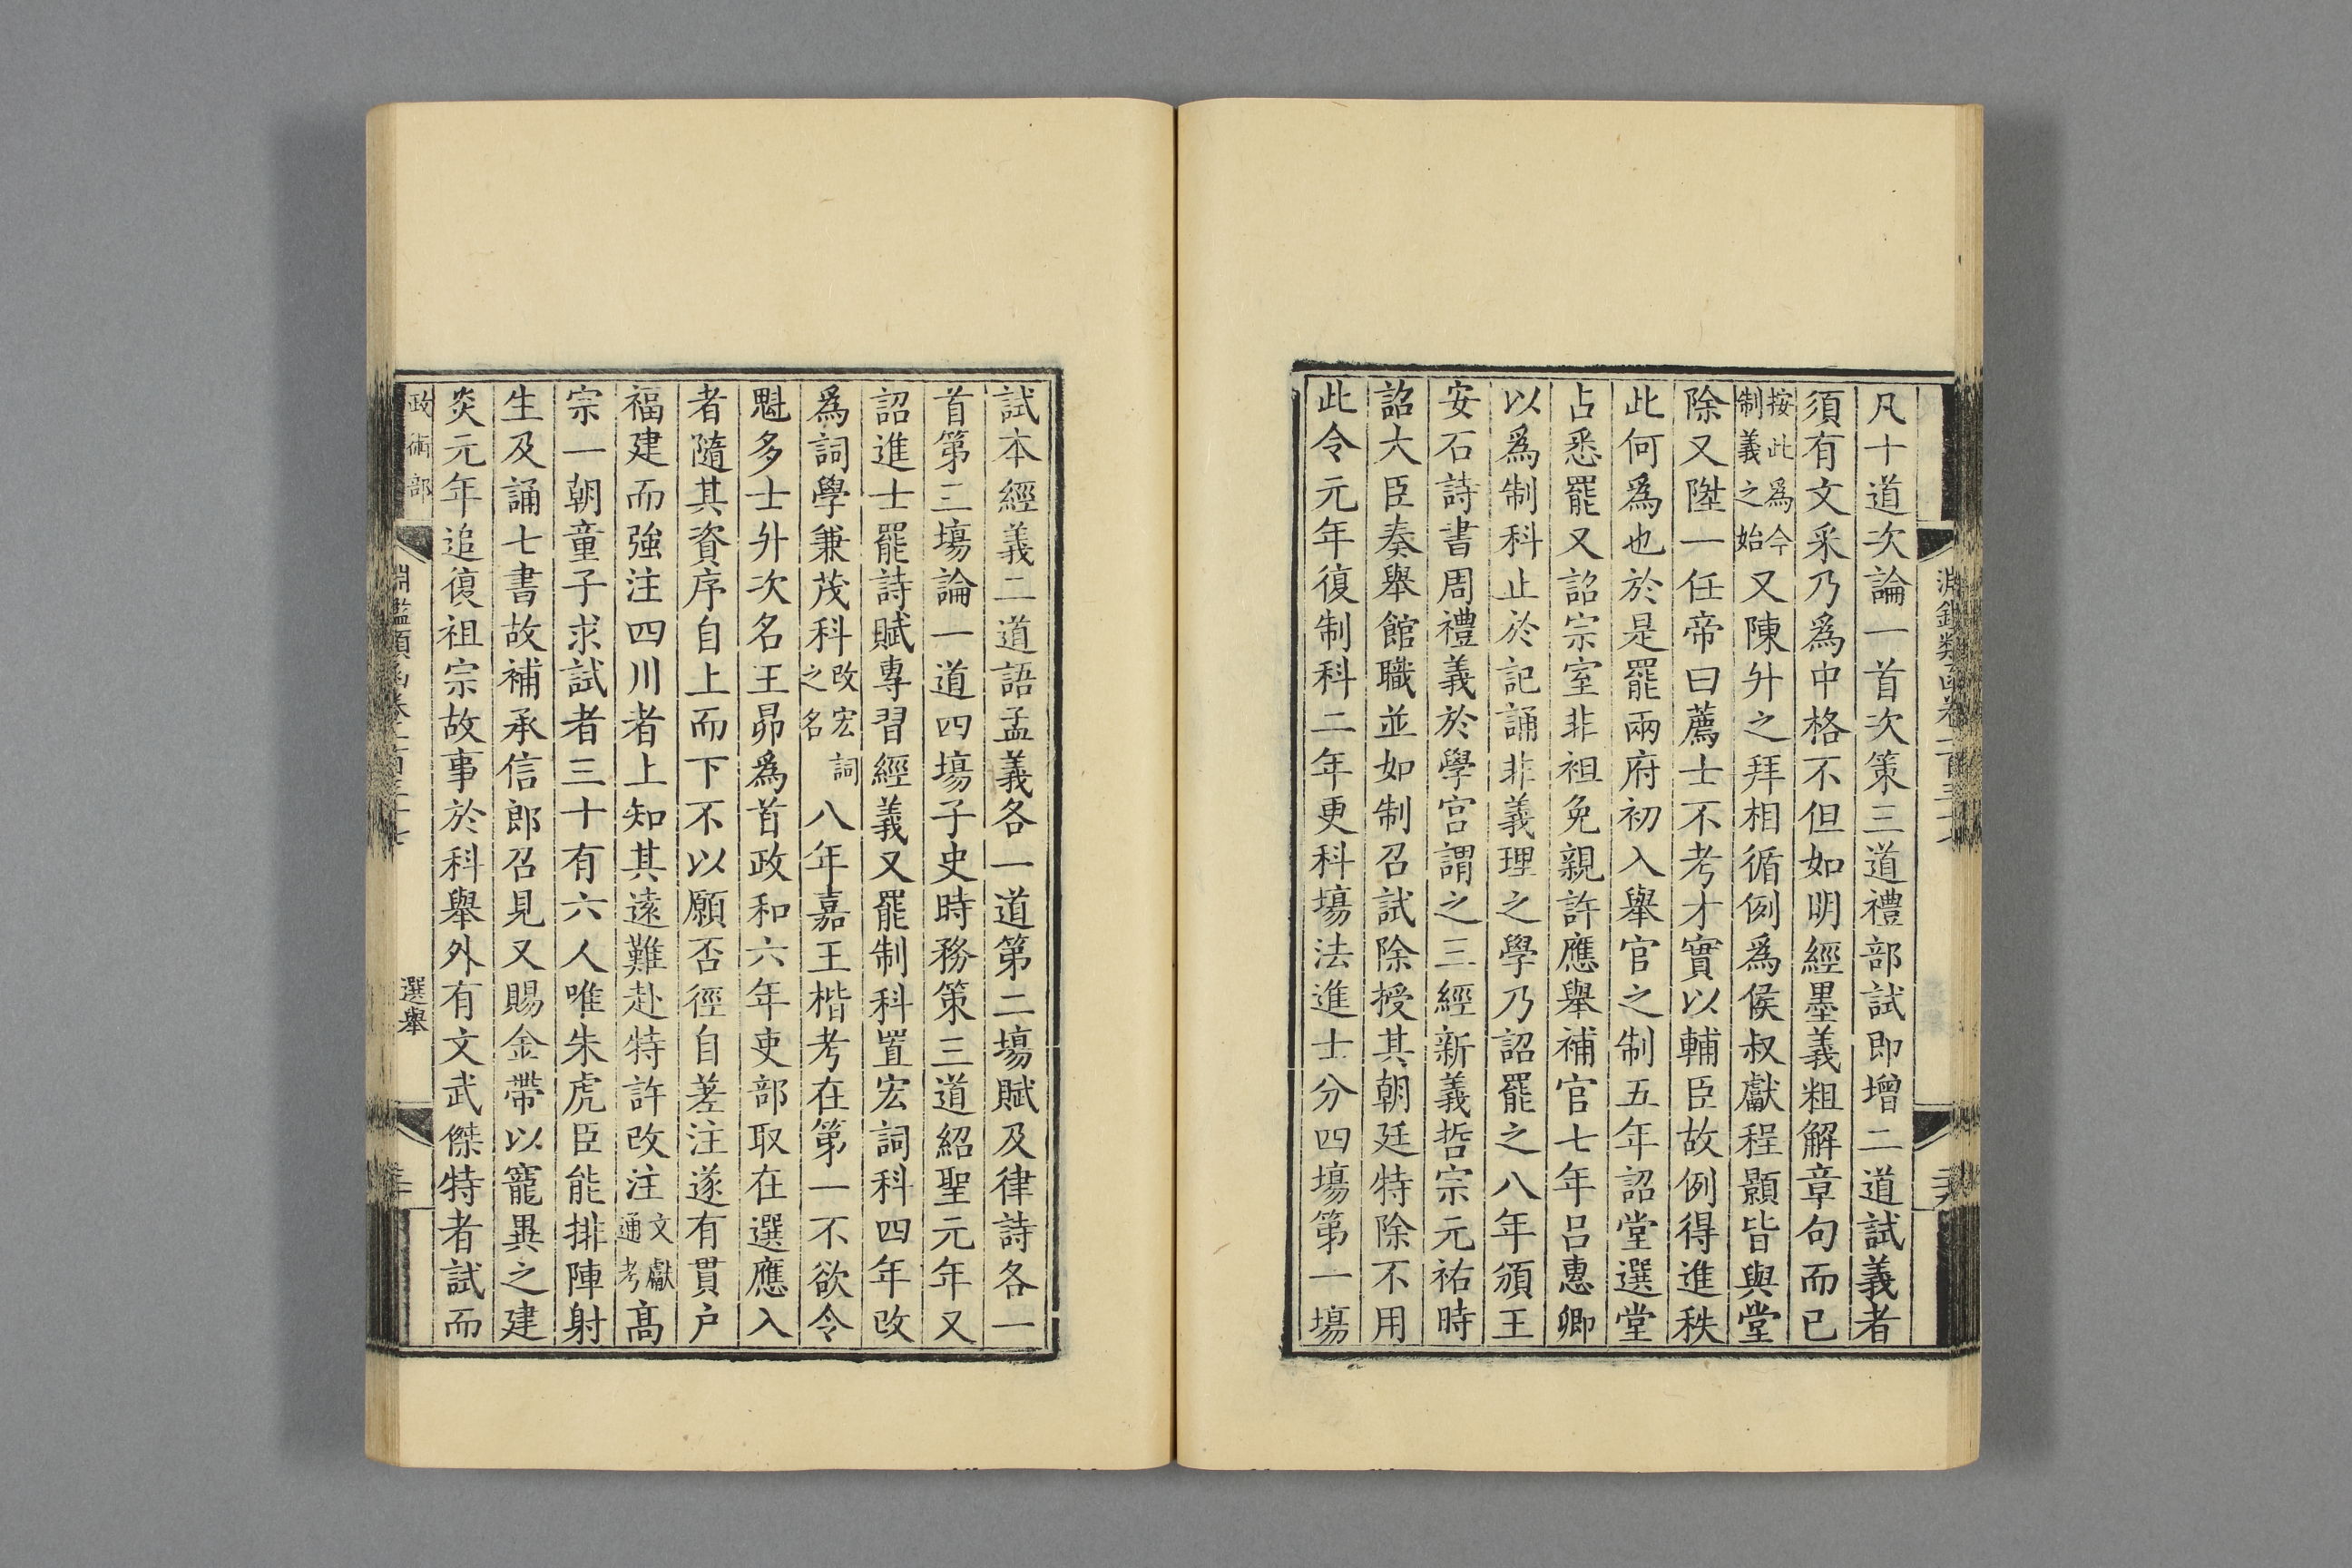 凡十道次論一首次策三道禮部試即增二道試義者
須有文采乃爲中格不但如明經墨義粗解章句而已
按此爲今制義之始又陳升之拜相循例爲侯叔獻程顥皆與堂
除又陞一任帝曰薦士不考才實以輔臣故例得進秩
此何爲也於是罷兩府初入舉官之制五年詔堂選堂
占悉罷又詔宗室非袒免親許應舉補官七年呂惠卿
以爲制科止於記誦非義理之學乃詔罷之八年頒王
安石詩書周禮義於學宮謂之三經新義哲宗元祐時
詔大臣奏舉館職並如制召試除授其朝廷特除不用
此令元年復制科二年更科塲法進士分四塲第一塲
試本經義二道語孟義各一道第二塲賦及律詩各一
首第三塲論一道四塲子史時務策三道紹聖元年又
詔進士罷詩賦專習經義又罷制科置宏詞科四年改
爲詞學兼茂科改宏詞之名八年嘉王楷考在第一不欲令
魁多士升次名王昴爲首政和六年吏部取在選應入
者隨其資序自上而下不以願否徑自差注遂有貫户
福建而強注四川者上知其遠難赴特許改注文獻通考高
宗一朝童子求試者三十有六人唯朱虎臣能排陣射
生及誦七書故補承信郎召見又賜金帶以寵異之建
炎元年追復祖宗故事於科舉外有文武傑特者試而
政術部
選舉